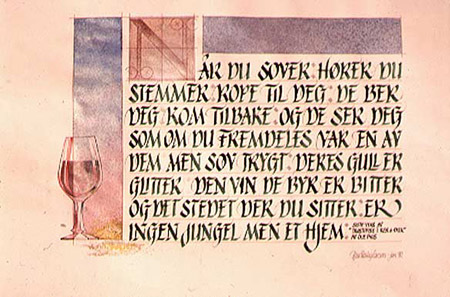 NÅR DU SOVER HØRER DU
STEMMER ROPE TIL DEG: DE BER
DEG KOM TILBAKE OG DE SER DEG
SOM OM DU FREMDELES VAR EN AV
DEM MEN SOV TRYGT: DERES GULL ER
GLITTER DEN VIN DE BYR ER BITTER
OG DET STEDET DER DU SITTER: ER
INGEN JUNGEL MEN ET HJEM:
SISTE VERS AV
AV OLE PAUS